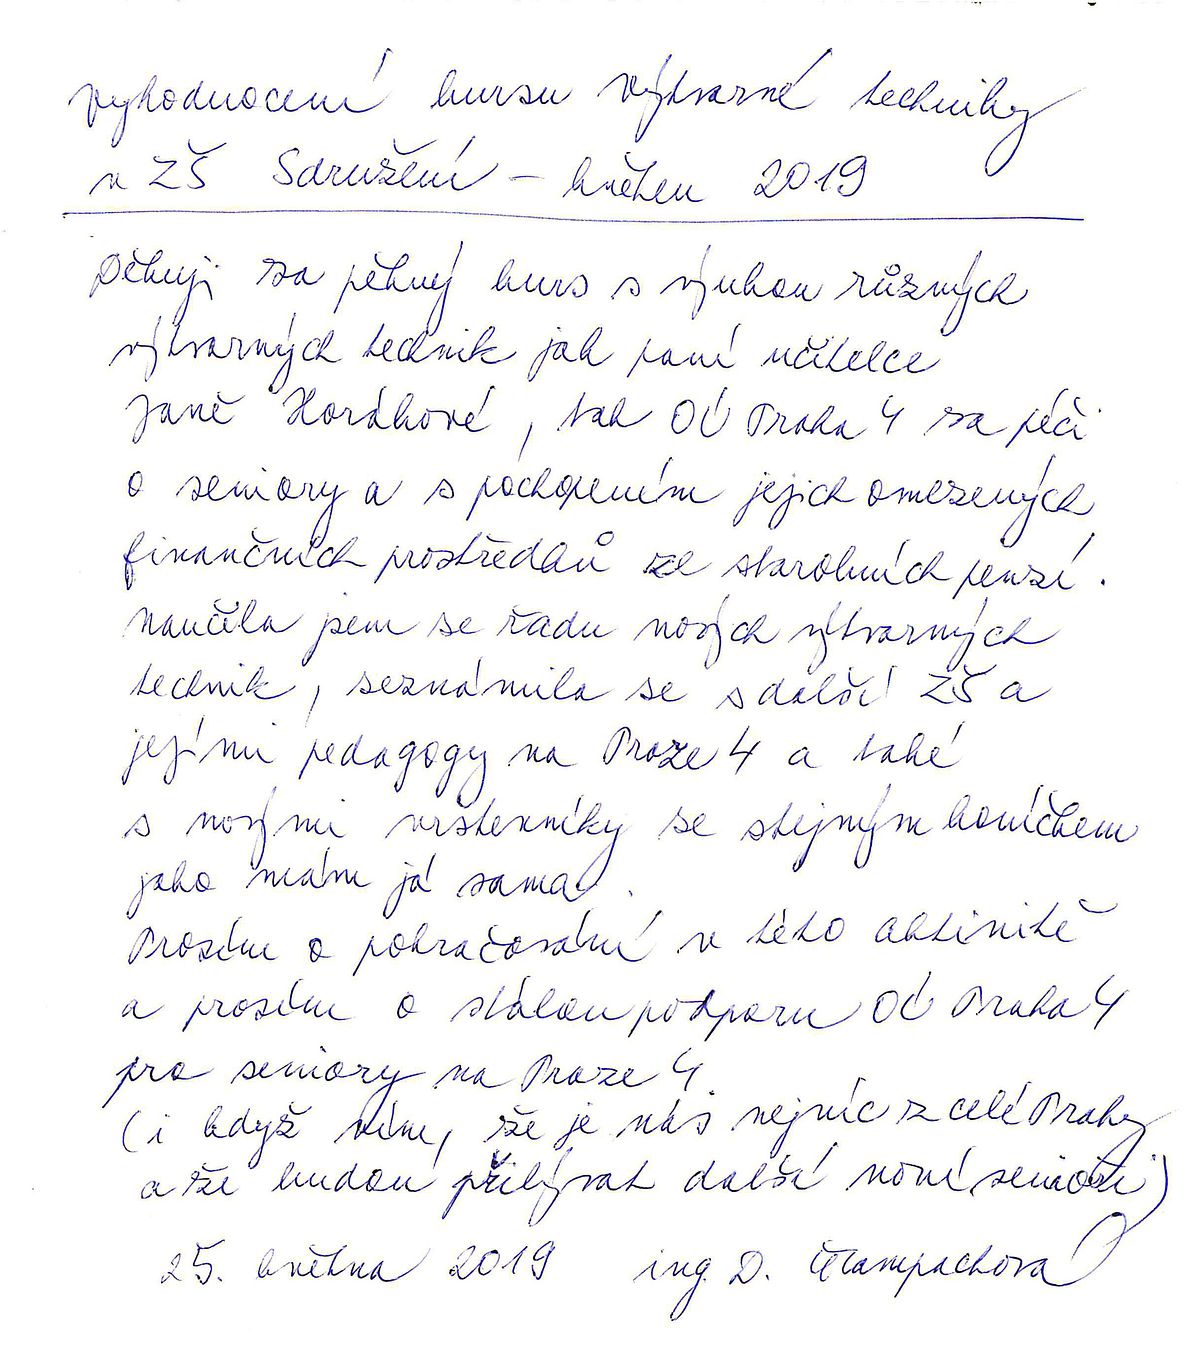 vyhodnocení kursu výtvarné techniky
v ZŠ Sdružení – květen 2019
Děkuji za pěkný kurs s výukou různých
výtvarných technik jak paní učitelce
Janě Horákové, tak OÚ Praha 4 za péči
o seniory a s pochopením jejich omezených
finančních prostředků ze starobních penzí.
naučila jsem se řadu nových výtvarných
technik, seznámila se s další ZŠ a
jejími pedagogy na Praze 4 a také
s novými vrstevníky se stejným koníčkem
jako mám já sama.
Prosím o pokračování v této aktivitě
a prosím o stálou podporu OÚ Praha 4
pro seniory na Praze 4.
(i když vím, že je nás nejvíc z celé Prahy
a že budou přibývat další noví senioři)
25. května 2019 ing. D.